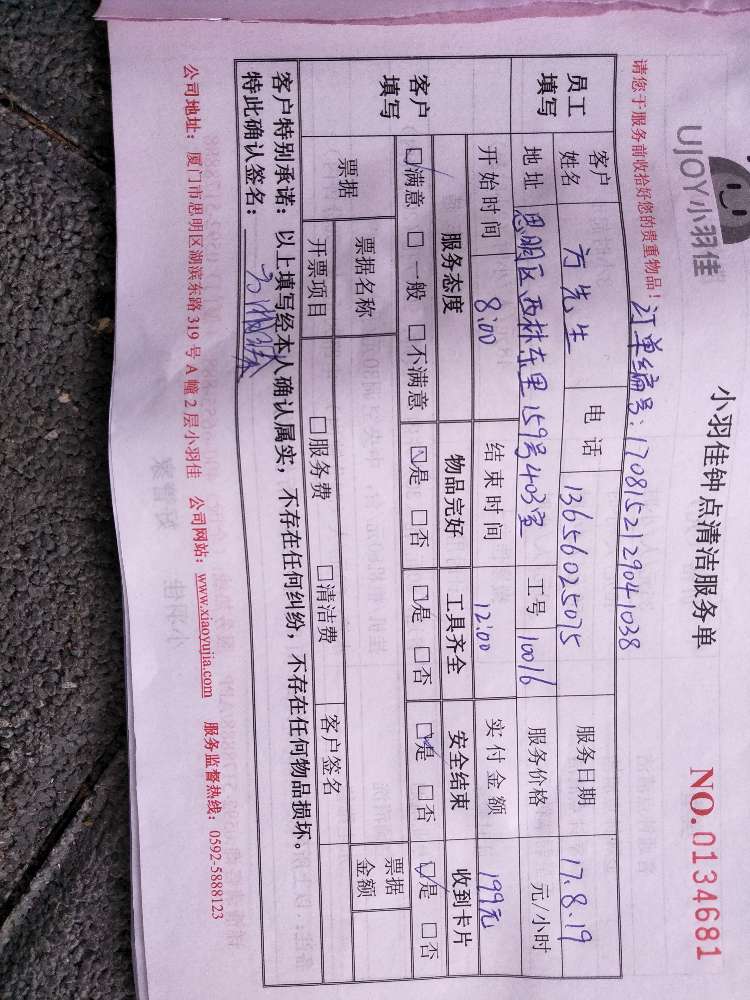 UJOY小羽佳
小羽佳钟点清洁服务单
NO.0134681
请您于服务前收拾好您的贵重物品！
订单编号：1708152129041038
员工填写
客户姓名 方先生 电话 13656025075 服务日期 17.8.19
地址 思明区西林东里159号403室 工号 10016 服务价格 元/小时
开始时间 8:00 结束时间 12:00 实付金额 199元
客户填写
服务态度 物品完好 工具齐全 安全结束 收到卡片
☑满意 □一般 □不满意 ☑是 □否 ☑是 □否 ☑是 □否 ☑是 □否
票据 票据名称 客户签名 票据金额
开票项目 □服务费 □清洁费
客户特别承诺：以上填写经本人确认属实，不存在任何纠纷，不存在任何物品损坏。
特此确认签名：
公司地址：厦门市思明区湖滨东路319号A幢2层小羽佳 公司网站：www.xiaoyujia.com 服务监督热线：0592-5888123